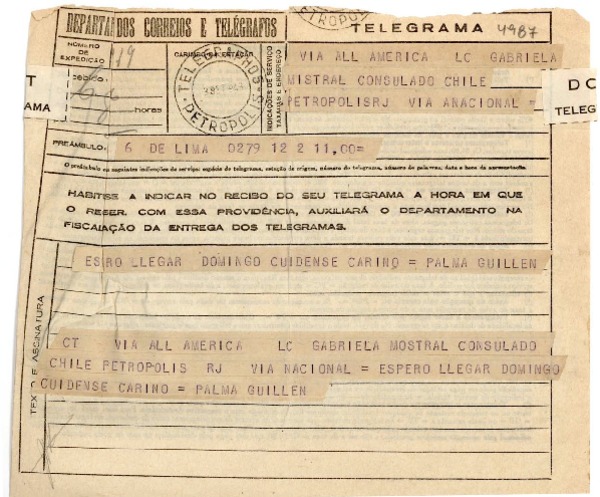 DEPARTAMDOS CORREIOS E TELÉGRAFOS
TELEGRAMA 4987
PETROPOL
NÚMERO DE EXPEDIÇÃO 119
CARIMBO
INDICAÇÕES DE SERVIÇO TAXADAS E ENDEREÇO
TELEGRAPHOS
PETROPOLIS
horas
VIA ALL AMERICA LC GABRIELA
MISTRAL CONSULADO CHILE
PETROPOLISRJ VIA ANACIONAL =
T
AMA
D C
TELEG
PREÂMBULO: 6 DE LIMA 0279 12 2 11,00=
O preâmbulo as seguintes indicações de serviço: espécie do telegrama, estação de origem, número do telegrama, número de palavras, data e hora da apresentação.
HABITUE A INDICAR NO RECIBO DO SEU TELEGRAMA A HORA EM QUE
O RESER. COM ESSA PROVIDÊNCIA, AUXILIARÁ O DEPARTAMENTO NA
FISCAIAÇÃO DA ENTREGA DOS TELEGRAMAS.
TEXTO E ASSINATURA
ESRO LLEGAR DOMINGO CUIDENSE CARINO = PALMA GUILLEN
CT VIA ALL AMERICA LC GABRIELA MOSTRAL CONSULADO
CHILE PETROPOLIS RJ VIA NACIONAL = ESPERO LLEGAR DOMINGO
CUIDENSE CARINO = PALMA GUILLEN